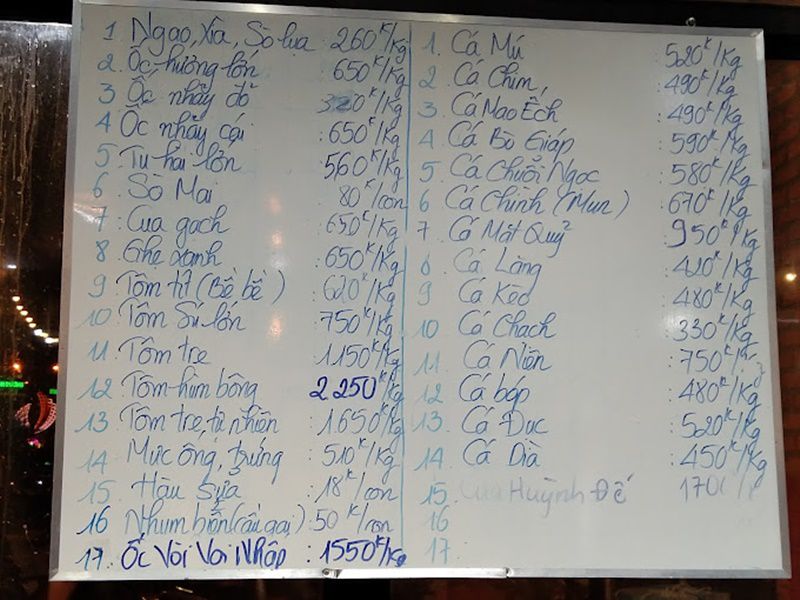 1 Ngao, Xía, Sò lụa : 260K/Kg
2 Ốc hương lớn : 650K/Kg
3 Ốc nhảy đỏ : 320K/Kg
4 Ốc nhảy cái : 650K/Kg
5 Tu hài lớn : 560K/Kg
6 Sò Mai : 80K/con
7 Cua gạch : 650K/Kg
8 Ghẹ xanh : 650K/Kg
9 Tôm tít (Bề bề) : 620K/Kg
10 Tôm Sú lớn : 750K/Kg
11 Tôm tre : 1150K/Kg
12 Tôm hùm bông 2 250K/Kg
13 Tôm tre, tự nhiên : 1650K/Kg
14 Mực ống, trứng : 510K/Kg
15 Hàu Sữa : 18K/con
16 Nhum biển (cầu gai) : 50K/con
17. Ốc Vòi Voi Nhập : 1550K/Kg
1. Cá Mú : 520K/Kg
2 Cá Chim, : 490K/Kg
3 Cá Mao Ếch : 490K/Kg
4 Cá Bò Giáp : 590K/Kg
5 Cá Chuối Ngọc : 580K/Kg
6 Cá Chình (Mun) : 670K/Kg
7 Cá Mặt Quỷ : 950K/Kg
8 Cá Làng : 420K/Kg
9 Cá Kèo : 480K/Kg
10 Cá Chạch : 330K/Kg
11 Cá Niên : 750K/Kg
12 Cá bóp : 480K/Kg
13 Cá Đục : 520K/Kg
14 Cá Dìa : 450K/Kg
15 Cua Huỳnh Đế 170
16
17.